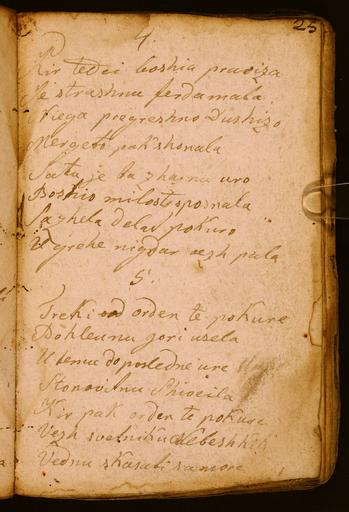 25
4.
Kir tedei boshia praviza
Je strashnu ferdamala
Niega pregreshno Dushizo
Nergeto pak skonala
Sa tu je ta zhainu uro
Boshio milost sposnala
Sazhela delat pokuro
V grehe nigdar vezh pala
5.
Treki od orden te pokure
Dohleunu gori usela
K temu do posledne ure
Stonovitnu Shiveila
Kir pak orden te pokure
Vezh svetniku Nebeshkih
Vednu skasati samore